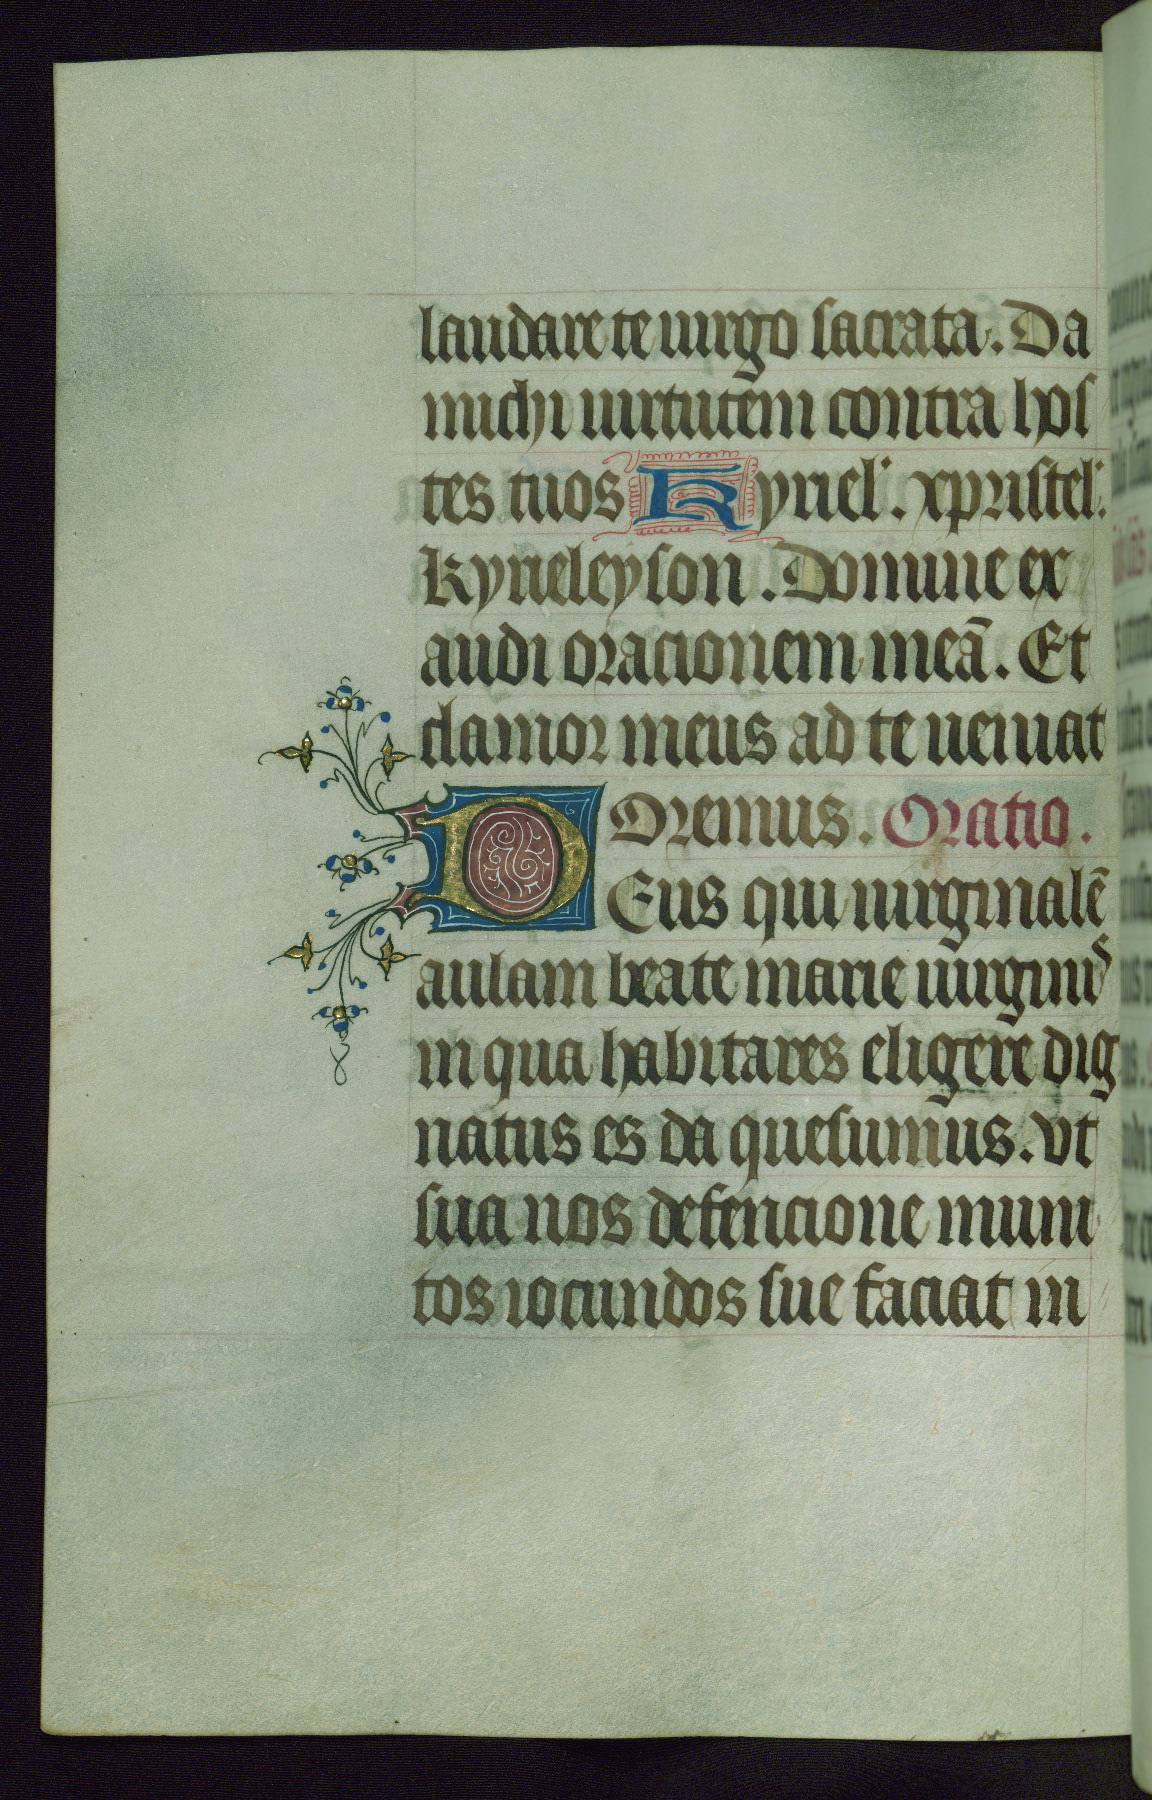 laudare te uirgo sacrata. Da
michi uirtutem contra hos
tes tuos Kyriel'. xpristel'.
Kyrieleyson. Domine ex
audi oracionem meā. Et
clamor meus ad te ueniat
Oremus. Oratio.
DEus qui uirginalē
aulam beate marie uirginis
in qua habitares eligere dig
natus es da quesumus. vt
sua nos defencione muni
tos iocundos sue faciat in